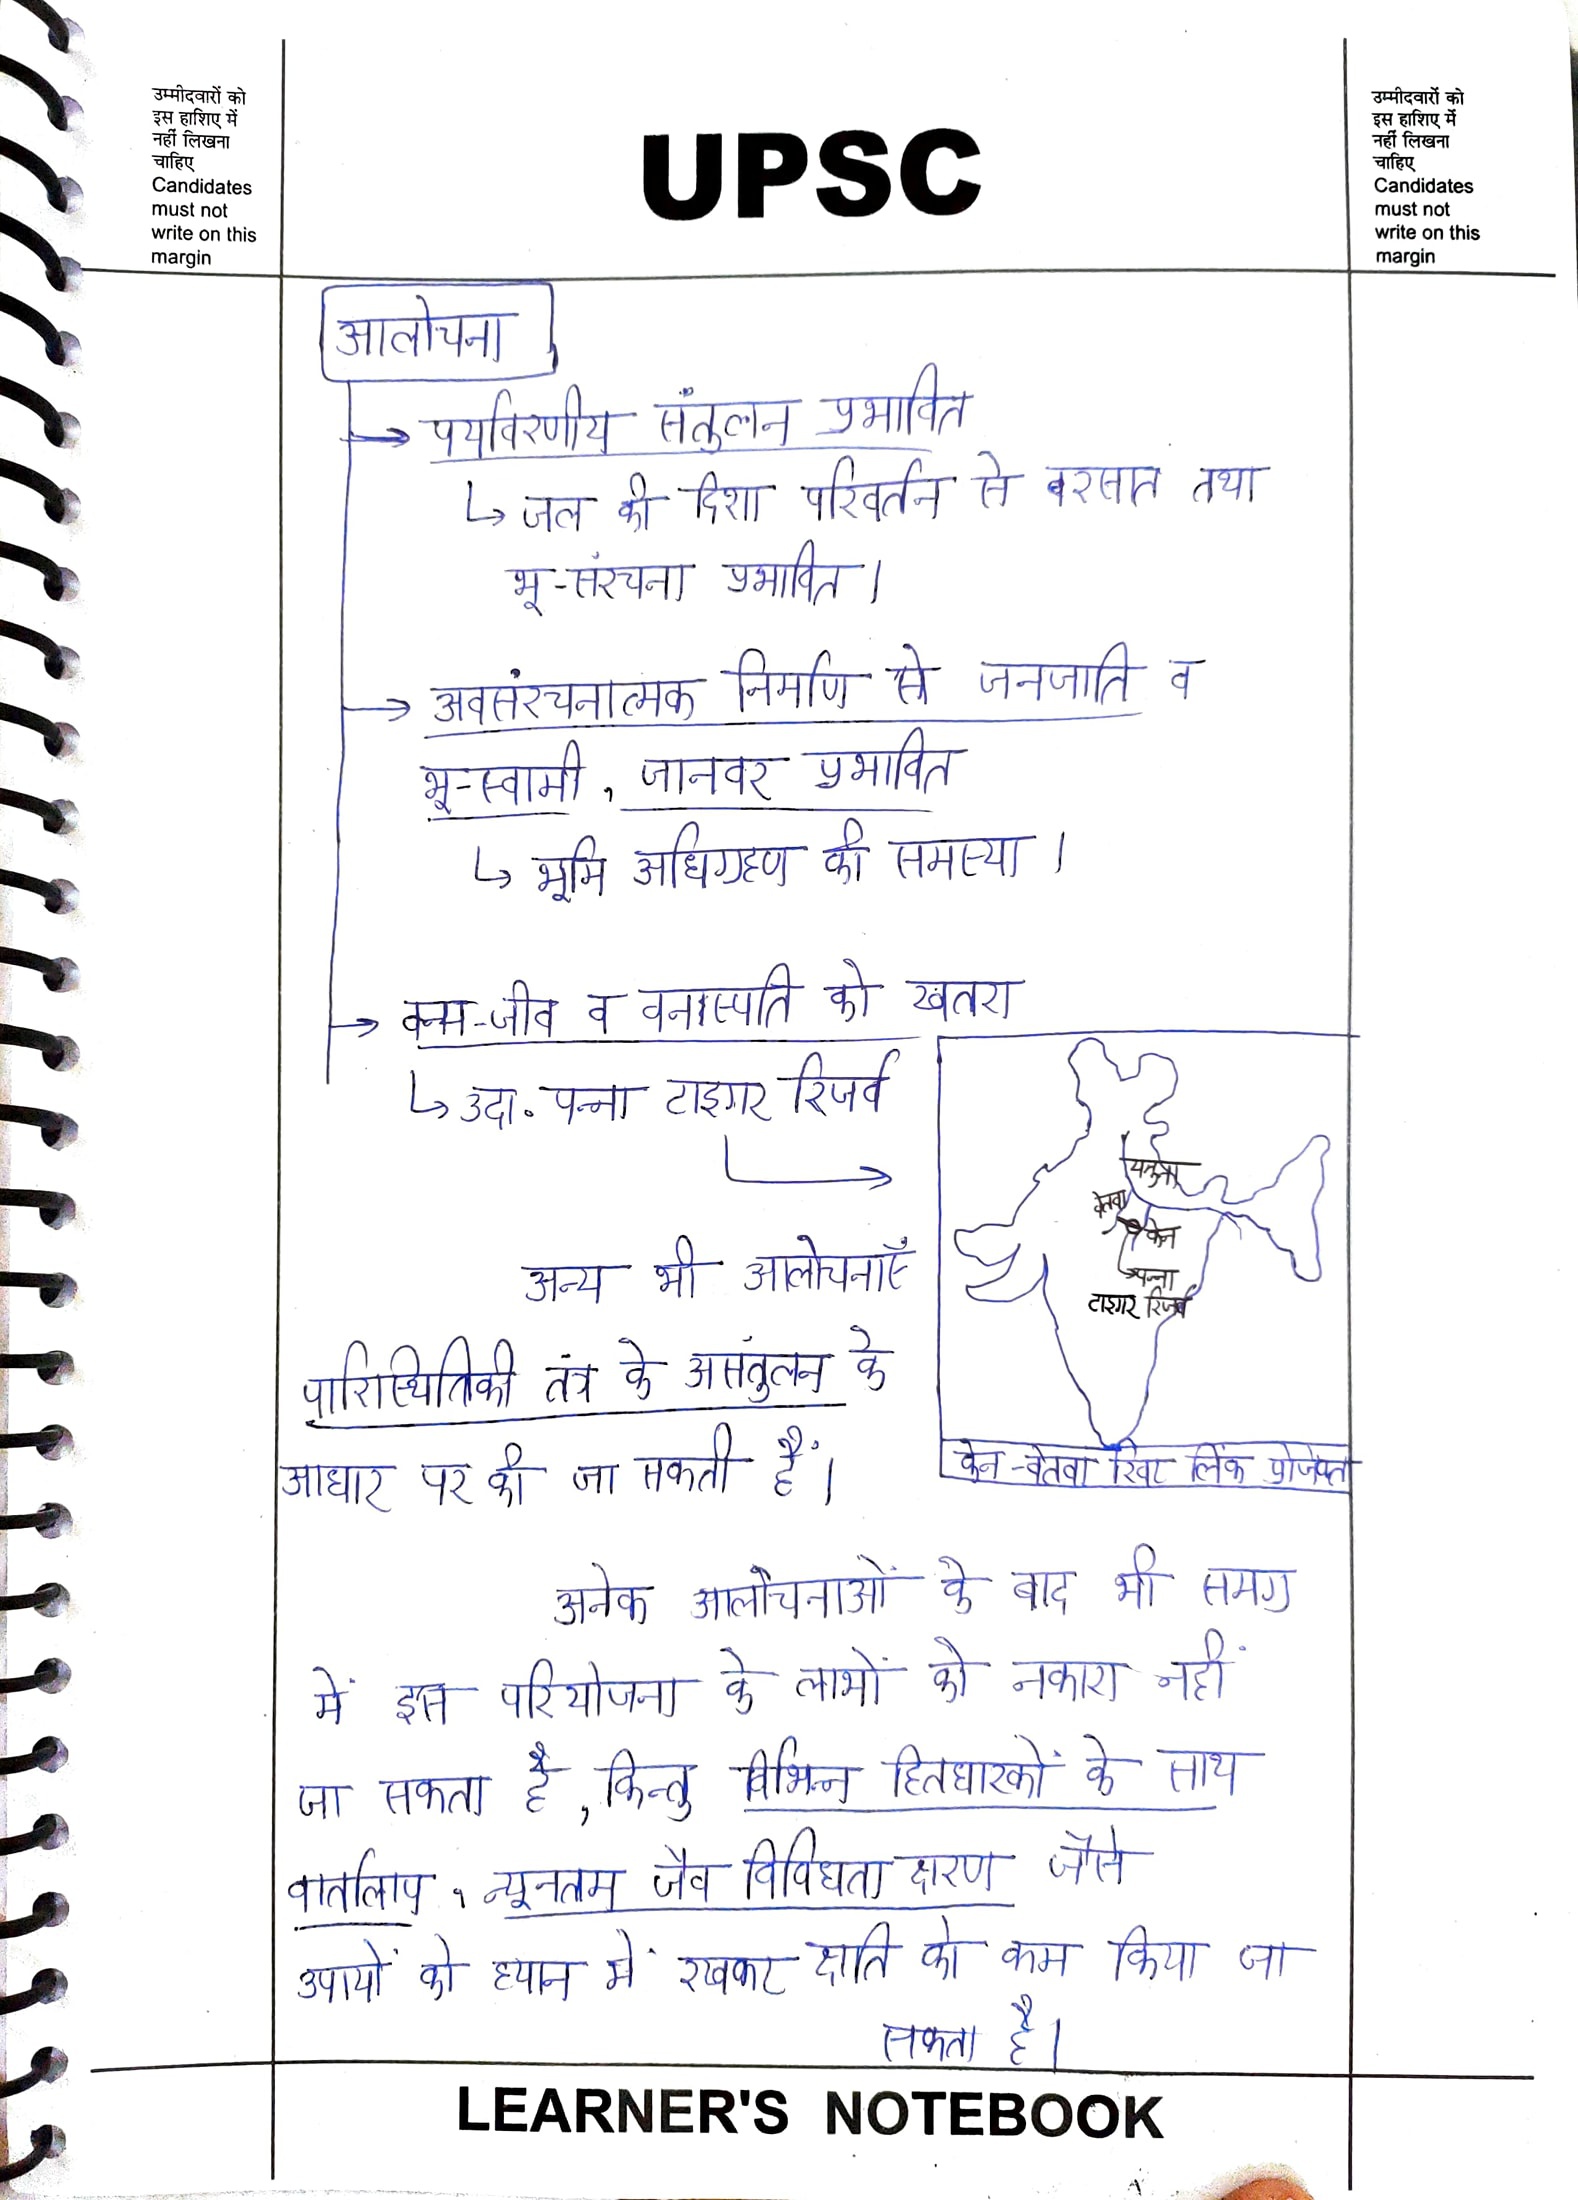 उम्मीदवारों को
इस हाशिए में
नहीं लिखना
चाहिए
Candidates
must not
write on this
margin
UPSC
उम्मीदवारों को
इस हाशिए में
नहीं लिखना
चाहिए
Candidates
must not
write on this
margin
आलोचना
→ पर्यावरणीय संतुलन प्रभावित
↳ जल की दिशा परिवर्तन से बरसात तथा
भू-संरचना प्रभावित।
→ अवसंरचनात्मक निर्माण से जनजाति व
भू-स्वामी, जानवर प्रभावित
↳ भूमि अधिग्रहण की समस्या।
→ वन्य-जीव व वनास्पति को खतरा
↳ उदा. पन्ना टाइगर रिजर्व
यमुना
बेतवा
केन
पन्ना
टाइगर रिजर्व
केन-बेतवा रिवर लिंक प्रोजेक्ट
अन्य भी आलोचनाएँ
पारिस्थितिकी तंत्र के असंतुलन के
आधार पर की जा सकती हैं।
अनेक आलोचनाओं के बाद भी समग्र
में इस परियोजना के लाभों को नकारा नहीं
जा सकता है, किन्तु विभिन्न हितधारकों के साथ
वार्तालाप, न्यूनतम जैव विविधता क्षरण जैसे
उपायों को ध्यान में रखकर क्षति को कम किया जा
सकता है।
LEARNER'S NOTEBOOK